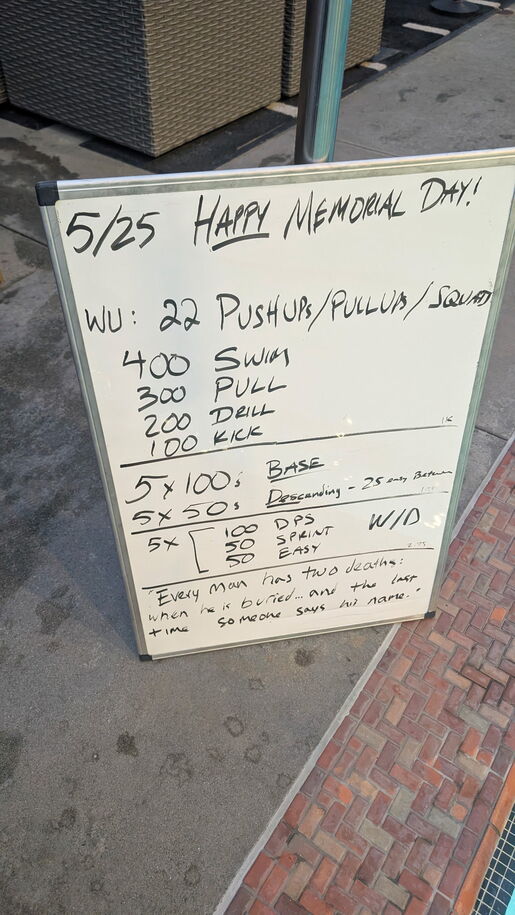 5/25 HAPPY MEMORIAL DAY!
WU: 22 PUSHUPS/PULLUPS/SQUATS
400 SWIM
300 PULL
200 DRILL
100 KICK
1K
5x100s BASE
5x50s Descending - 25 easy Between
5x [ 100 DPS
50 SPRINT W/D
50 EASY
"Every man has two deaths:
when he is buried... and the last
time someone says his name."